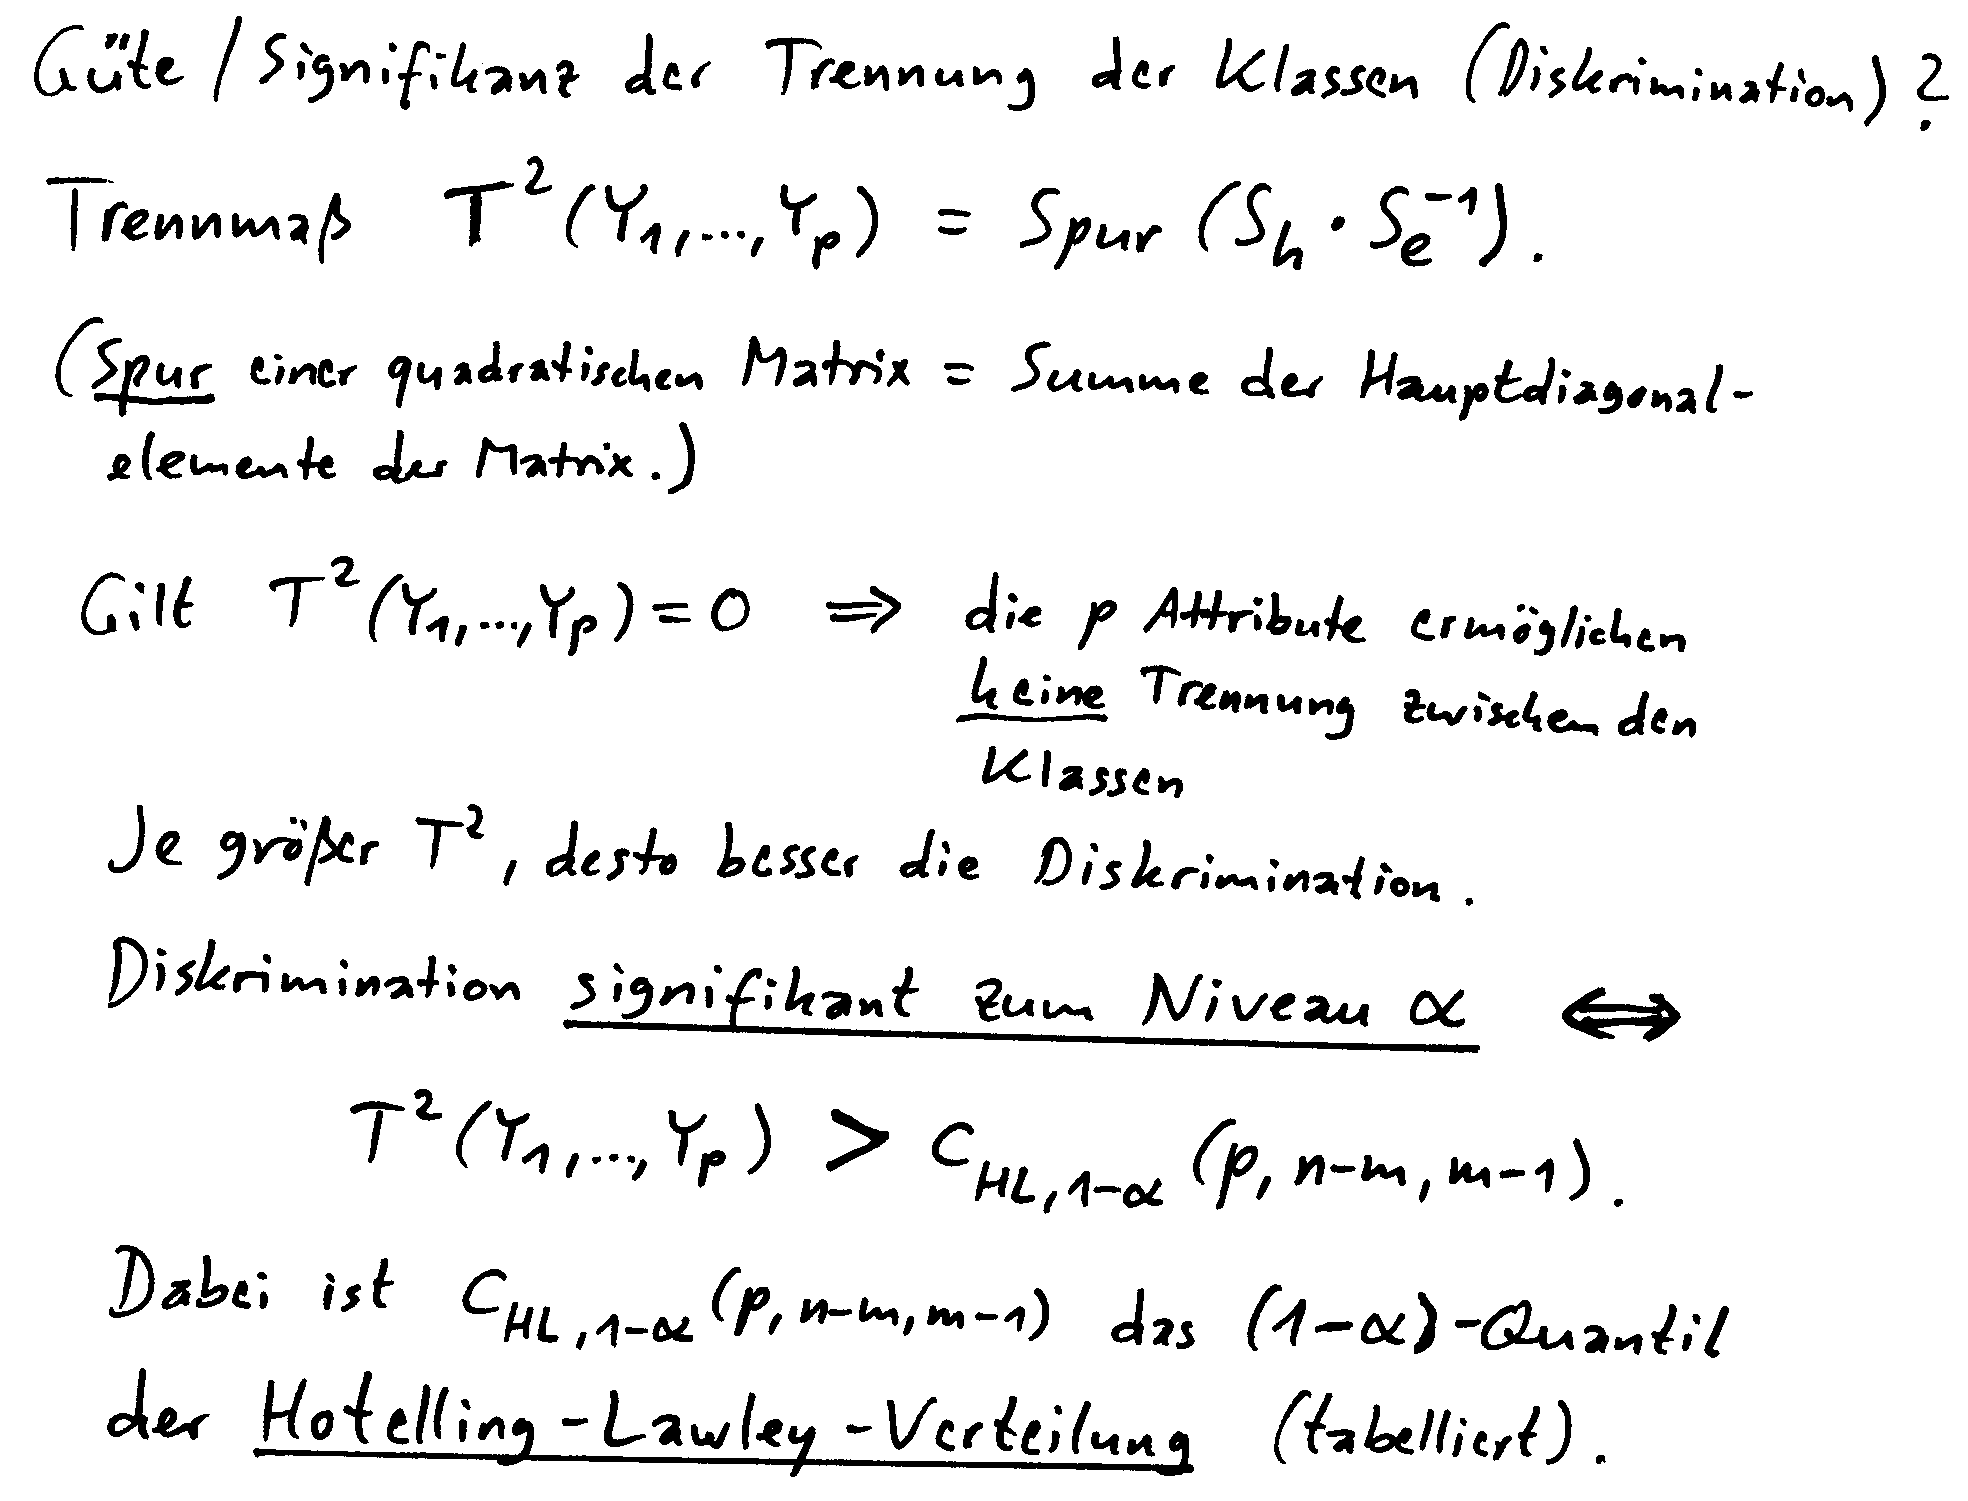 Güte / Signifikanz der Trennung der Klassen (Diskrimination)?
Trennmaß T²(Y₁,...,Yₚ) = Spur (Sₕ · Sₑ⁻¹).
(Spur einer quadratischen Matrix = Summe der Hauptdiagonal-
elemente der Matrix.)
Gilt T²(Y₁,...,Yₚ) = 0 ⇒ die p Attribute ermöglichen
keine Trennung zwischen den
Klassen
Je größer T², desto besser die Diskrimination.
Diskrimination signifikant zum Niveau α ⇔
T²(Y₁,...,Yₚ) > C_{HL,1-α} (p, n-m, m-1).
Dabei ist C_{HL,1-α} (p, n-m, m-1) das (1-α)-Quantil
der Hotelling-Lawley-Verteilung (tabelliert).